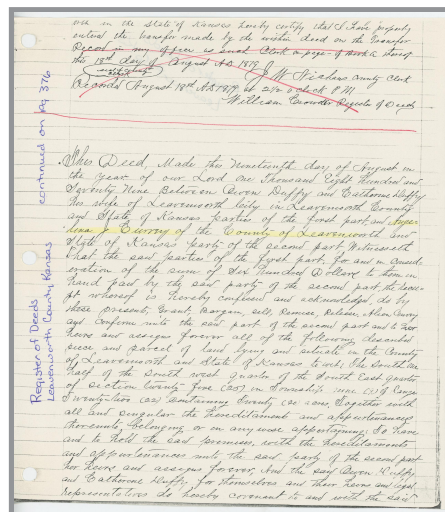 in the State of Kansas hereby certify that I have properly
entered the transfer made by the within deed on the Transfer
Record in my office as
this 18th day of August AD. 1879
J W Niehaus County Clerk
Recorded August 18th AD 1879 at 2 1/2 o'clock P M
William Crowder Register of Deeds
This Deed, Made this Nineteenth day of August in
the year of our Lord One Thousand Eight Hundred and
Seventy Nine Between Owen Duffy and Catharine Duffy
his wife of Leavenworth City in Leavenworth County
and State of Kansas parties of the first part and
J Currey of the County of Leavenworth and
State of Kansas party of the second part Witnesseth
that the said parties of the first part, for and in Consid-
eration of the sum of Six Hundred Dollars to them in
hand paid by the said party of the second part the receipt
whereof is hereby confessed and acknowledged, do by
these presents, Grant, Bargain, sell, Remise, Release, Alien Convey
and Confirm unto the said party of the second part and to her
heirs and assigns forever all of the following described
piece and parcel of land lying and situate in the County
of Leavenworth and State of Kansas to wit; The South
half of the South west quarter of the South East quarter
of section twenty five (25) in Township of Range
Twenty two (22) Containing Twenty (20) acres, Together with
all and singular the hereditaments and appurtenances
thereunto belonging or in any wise appertaining; To have
and to hold the said premises, with the hereditaments
and appurtenances unto the said party of the second part
her heirs and assigns forever, And the said Owen Duffy
and Catharine Duffy for themselves and their heirs and legal
representatives do hereby covenant to and with the said
continued on pg 376
Register of Deeds
Leavenworth County, Kansas